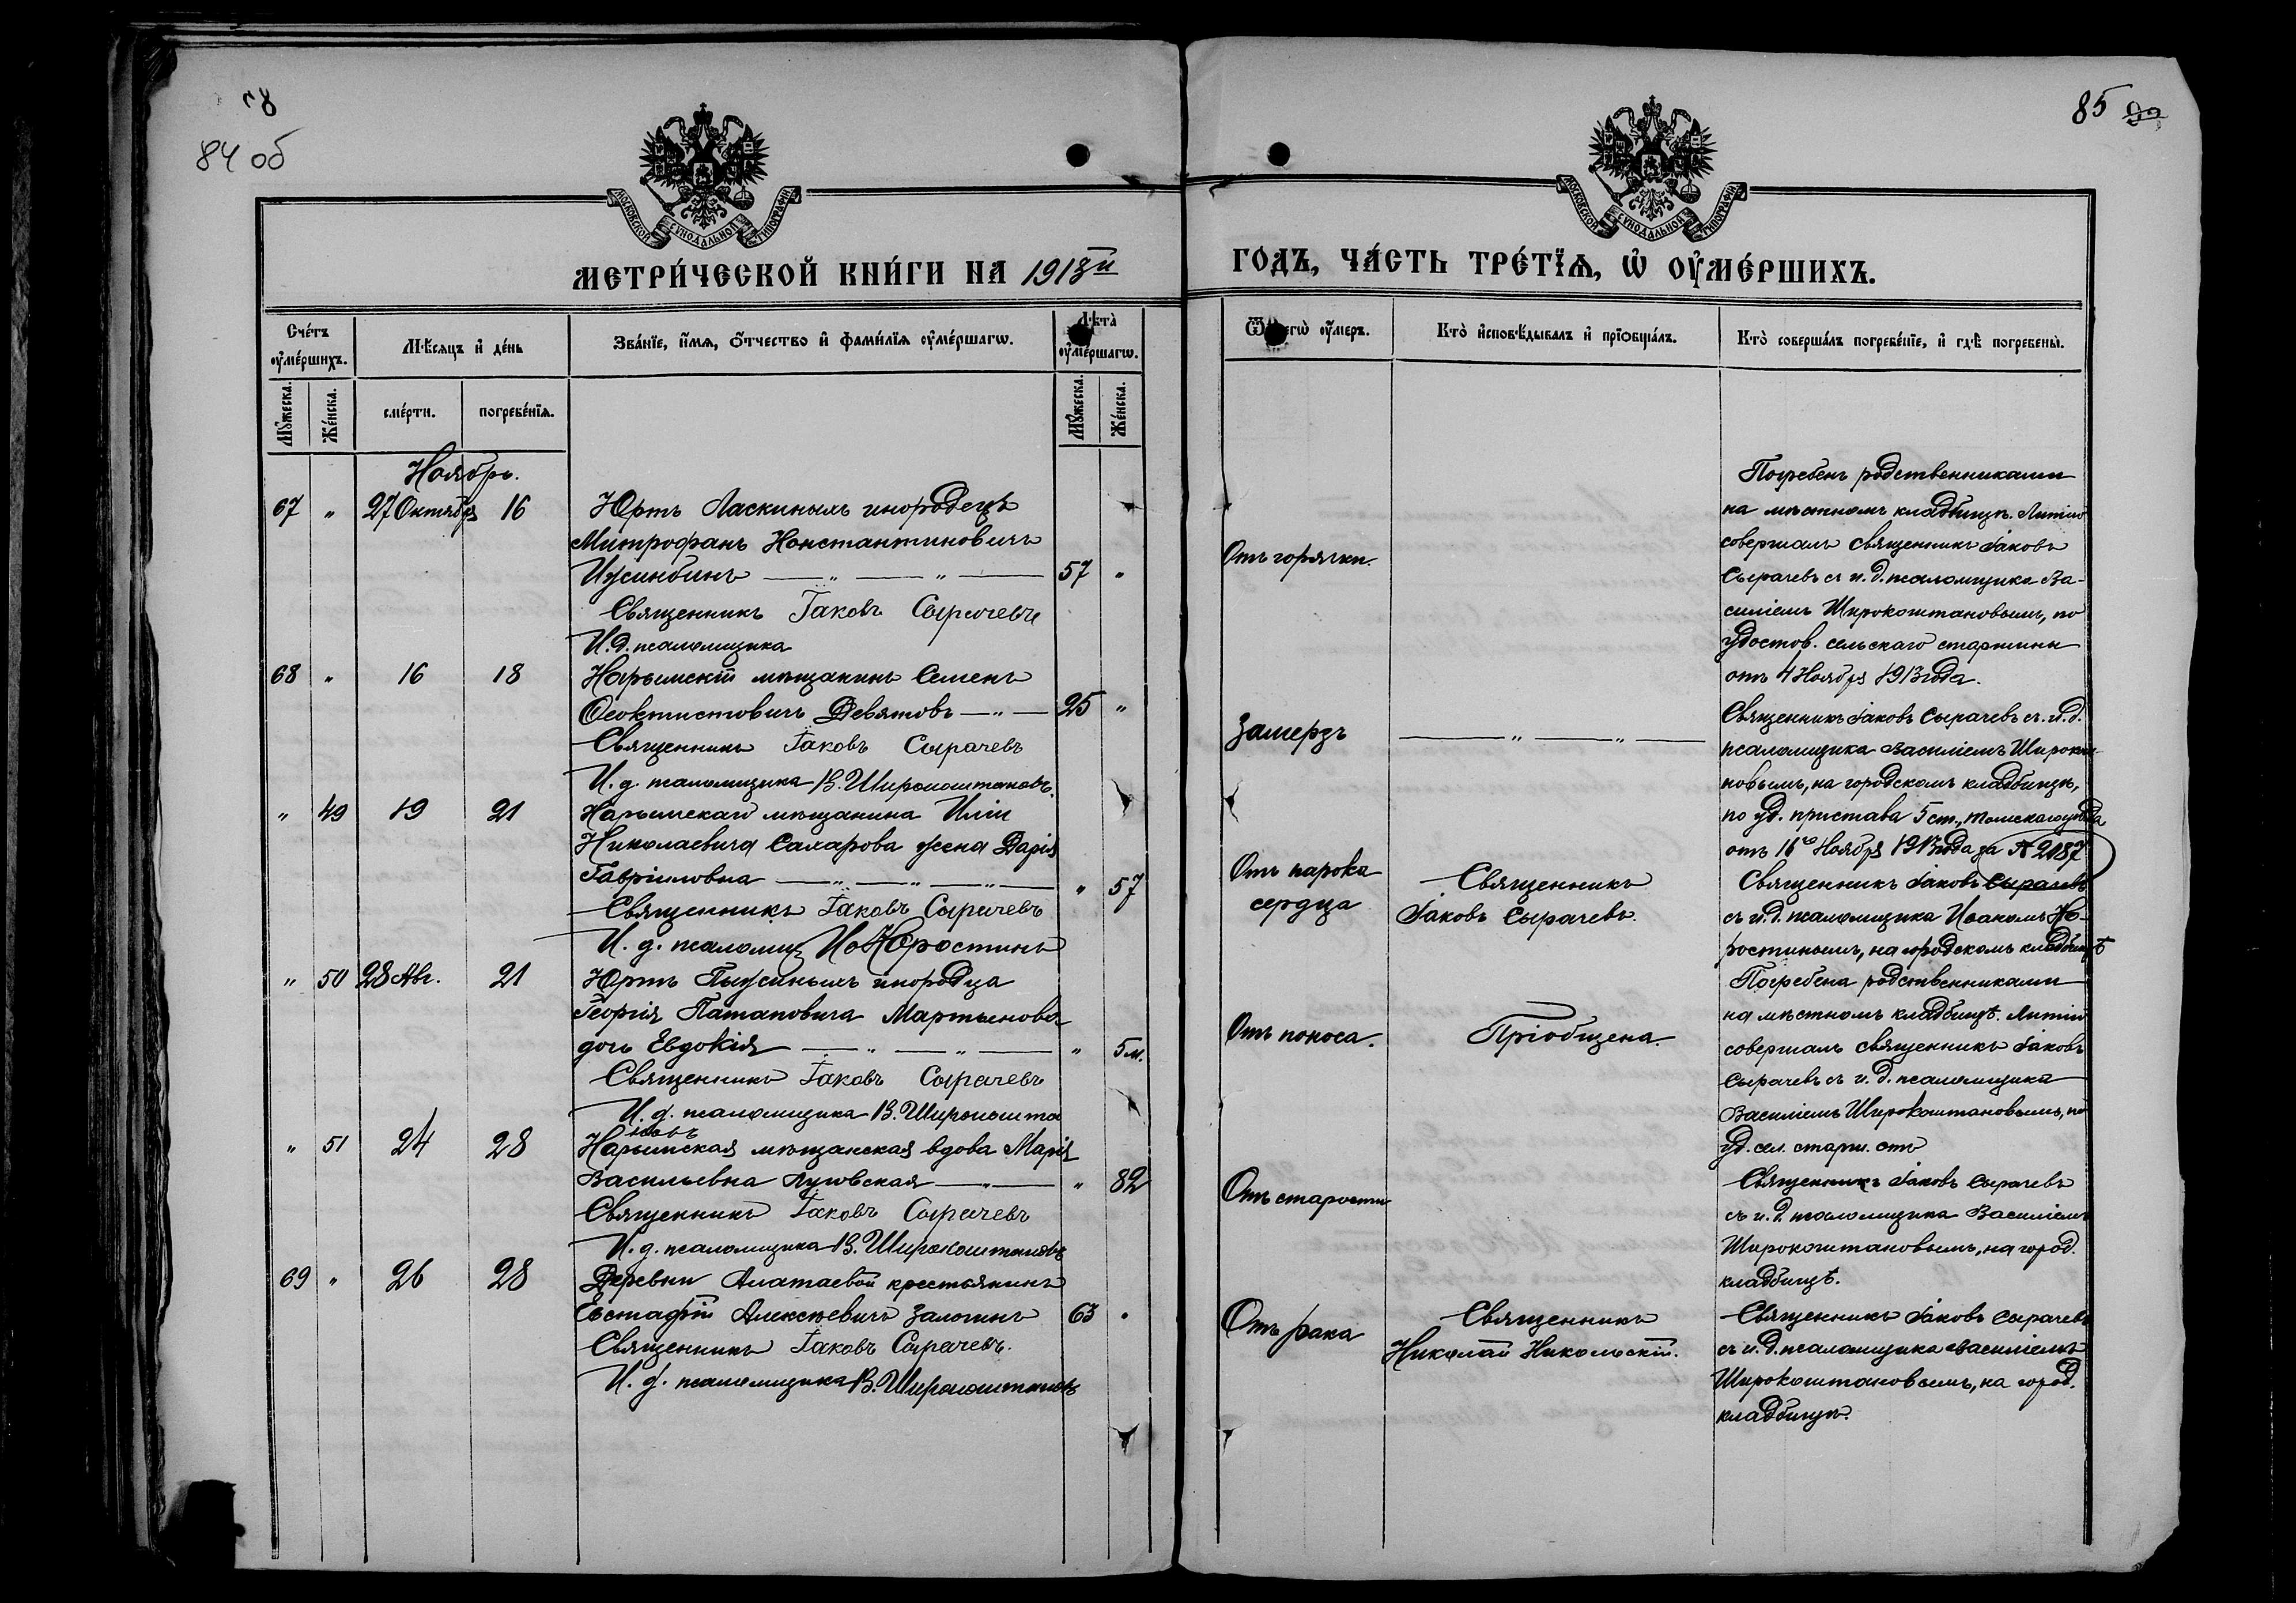 84 об
85
МОСКОВСКОЙ СѴНОДАЛЬНОЙ ТИПОГРАФІИ
МОСКОВСКОЙ СѴНОДАЛЬНОЙ ТИПОГРАФІИ
МЕТРИ́ЧЕСКОЙ КНИ́ГИ НА 1913й
ГОДЪ, ЧА́СТЬ ТРЕ́ТЇѦ, Ѡ҆ ОУ҆МЕ́РШИХЪ.
Сче́тъ оу҆ме́ршихъ.
Мѣ́сяцъ и҆ де́нь
Зва́нїе, и҆́мѧ, о҆́тчество и҆ фами́лїѧ оу҆ме́ршагѡ.
Лѣта̀ оу҆ме́ршагѡ.
Мꙋ́жеска.
Же́нска.
сме́рти.
погребе́нїѧ.
Мꙋ́жеска.
Же́нска.
оу҆́меръ.
Кто̀ и҆сповѣ́дывалъ и҆ прїѡбща́лъ.
Кто̀ соверша́лъ погребе́нїе, и҆ гдѣ̀ погребены̀.
Ноябрь.
67 " 27 Октября 16
Юртъ Ласкиныхъ инородецъ
Митрофанъ Константиновичъ
Ижинбинъ — " — " — 57 "
Священникъ Іаковъ Сырачевъ
И.д. псаломщика
Отъ горячки.
Погребенъ родственниками
на мѣстномъ кладбищѣ. Литію
совершалъ священникъ Іаковъ
Сырачевъ съ и.д. псаломщика Ва-
силіемъ Широкоштановымъ, по
удостов. сельскаго старшины
отъ 4 Ноября 1913 года.
68 " 16 18
Нарымскій мѣщанинъ Семенъ
Ѳеоктистовичъ Девятовъ — " — 25 "
Священникъ Іаковъ Сырачевъ
И.д. псаломщика В. Широкоштановъ.
Замерзъ
— " — " —
Священникъ Іаковъ Сырачевъ съ и.д.
псаломщика Василіемъ
новымъ, на городскомъ кладбищѣ,
по уд. пристава 5 ст., Томскаго уѣзда
отъ 16го Ноября 1913 года за № 2187
" 49 19 21
Нарымскаго мѣщанина Иліи
Николаевича Сахарова жена Дарія
Гавріиловна — " — " — " — " 57
Священникъ Іаковъ Сырачевъ
И.д. псаломщ Ив Коростинъ
Отъ порока
сердца
Священникъ
Іаковъ Сырачевъ.
Священникъ Іаковъ Сырачевъ
съ и.д. псаломщика Иваномъ Ко-
ростинымъ, на городскомъ кладбищѣ
" 50 28 Авг. 21
Юртъ Пыжиныхъ инородца
Георгія Патаповича Мартынова
дочь Евдокія — " — " — " 5 м.
Священникъ Іаковъ Сырачевъ
И.д. псаломщика В. Широкошта
новъ
Отъ поноса.
Пріобщена.
Погребена родственниками
на мѣстномъ кладбищѣ. Литію
совершалъ священникъ Іаковъ
Сырачевъ съ и.д. псаломщика
Василіемъ Широкоштановымъ, по
уд. сел. старш. отъ
" 51 24 28
Нарымская мѣщанская вдова Марія
Васильевна Луговская — " — " 82
Священникъ Іаковъ Сырачевъ
И.д. псаломщика В. Широкоштановъ
Отъ старости
Священникъ Іаковъ Сырачевъ
съ и.д. псаломщика Василіемъ
Широкоштановымъ, на город.
кладбищѣ.
69 " 26 28
Деревни Алатаевой крестьянинъ
Евстафій Алексѣевичъ Залогинъ 63 "
Священникъ Іаковъ Сырачевъ.
И.д. псаломщика В. Широкоштановъ
Отъ рака
Священникъ
Николай Никольскій.
Священникъ Іаковъ Сырачевъ
съ и.д. псаломщика Василіемъ
Широкоштановымъ, на город.
кладбищѣ.